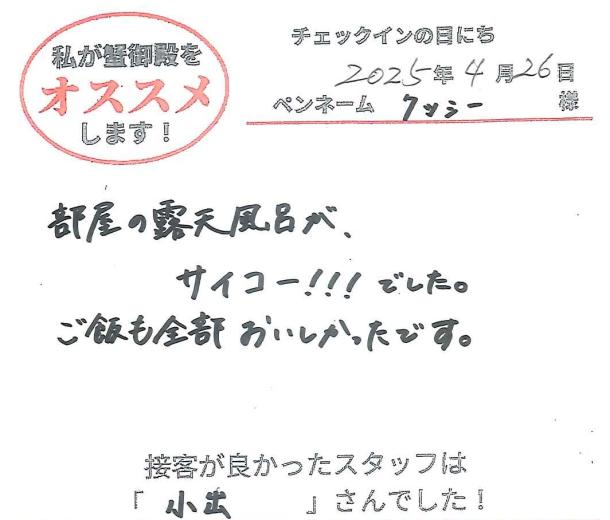 私が蟹御殿を
オススメ
します！
チェックインの日にち
2025年4月26日
ペンネーム クッシー 様
部屋の露天風呂が、
サイコー!!!でした。
ご飯も全部おいしかったです。
接客が良かったスタッフは
「小出」さんでした！